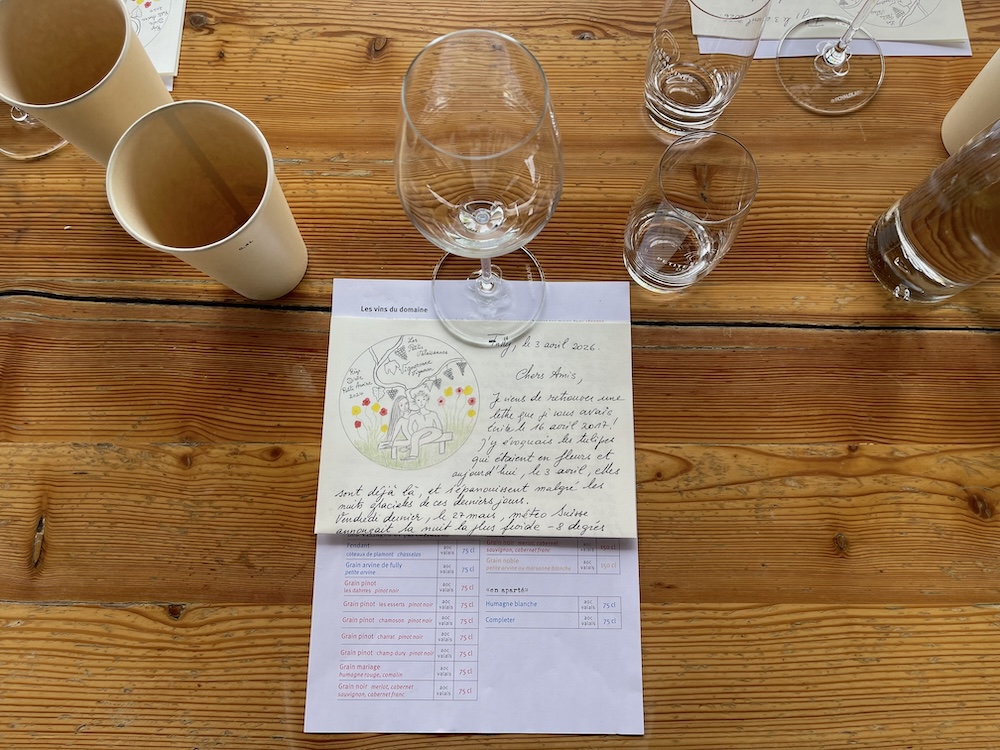 Les vins du domaine
Fully, le 3 avril 2026.
Chers Amis,
Je viens de retrouver une
lettre que je vous avais
écrite le 16 avril 2017!
J'y évoquais les tulipes
qui étaient en fleurs et
aujourd'hui, le 3 avril, elles
sont déjà là, et s'épanouissent malgré les
nuits glaciales de ces derniers jours.
Vendredi dernier, le 27 mars, météo Suisse
annonçait la nuit la plus froide -8 degrés
Les
Petits
Vigneron
2024
Fendant
coteaux de plamont chasselas
aoc
valais
75 cl
Grain arvine de fully
petite arvine
aoc
valais
75 cl
Grain pinot
les dahrres pinot noir
aoc
valais
75 cl
Grain pinot les esserts pinot noir
aoc
valais
75 cl
Grain pinot chamoson pinot noir
aoc
valais
75 cl
Grain pinot charrat pinot noir
aoc
valais
75 cl
Grain pinot champ dury pinot noir
aoc
valais
75 cl
Grain mariage
humagne rouge, cornalin
aoc
valais
75 cl
Grain noir merlot, cabernet
sauvignon, cabernet franc
aoc
valais
75 cl
Grain noir merlot, cabernet
sauvignon, cabernet franc
aoc
valais
150 cl
Grain noble
petite arvine ou marsanne blanche
aoc
valais
150 cl
«en aparté»
Humagne blanche
aoc
valais
75 cl
Completer
aoc
valais
75 cl